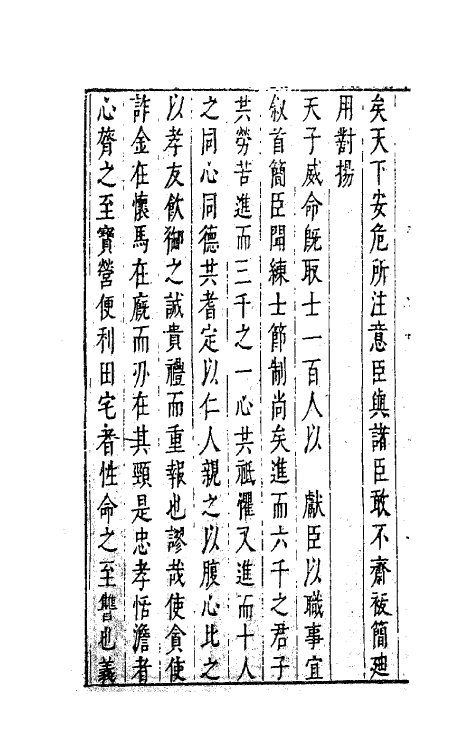 矣天下安危所注意臣與諸臣敢不齋祓簡迪
用對揚
天子威命旣取士一百人以　獻臣以職事宜
叙首簡臣聞練士節制尚矣進而六千之君子
共勞苦進而三千之一心共祇懼又進而十人
之同心同德共耆定以仁人親之以腹心比之
以孝友飲御之誠貴禮而重報也謬哉使貪使
詐金在懷馬在廐而刅在其頸是忠孝恬澹者
心膂之至寶營便利田宅者性命之至讐也義